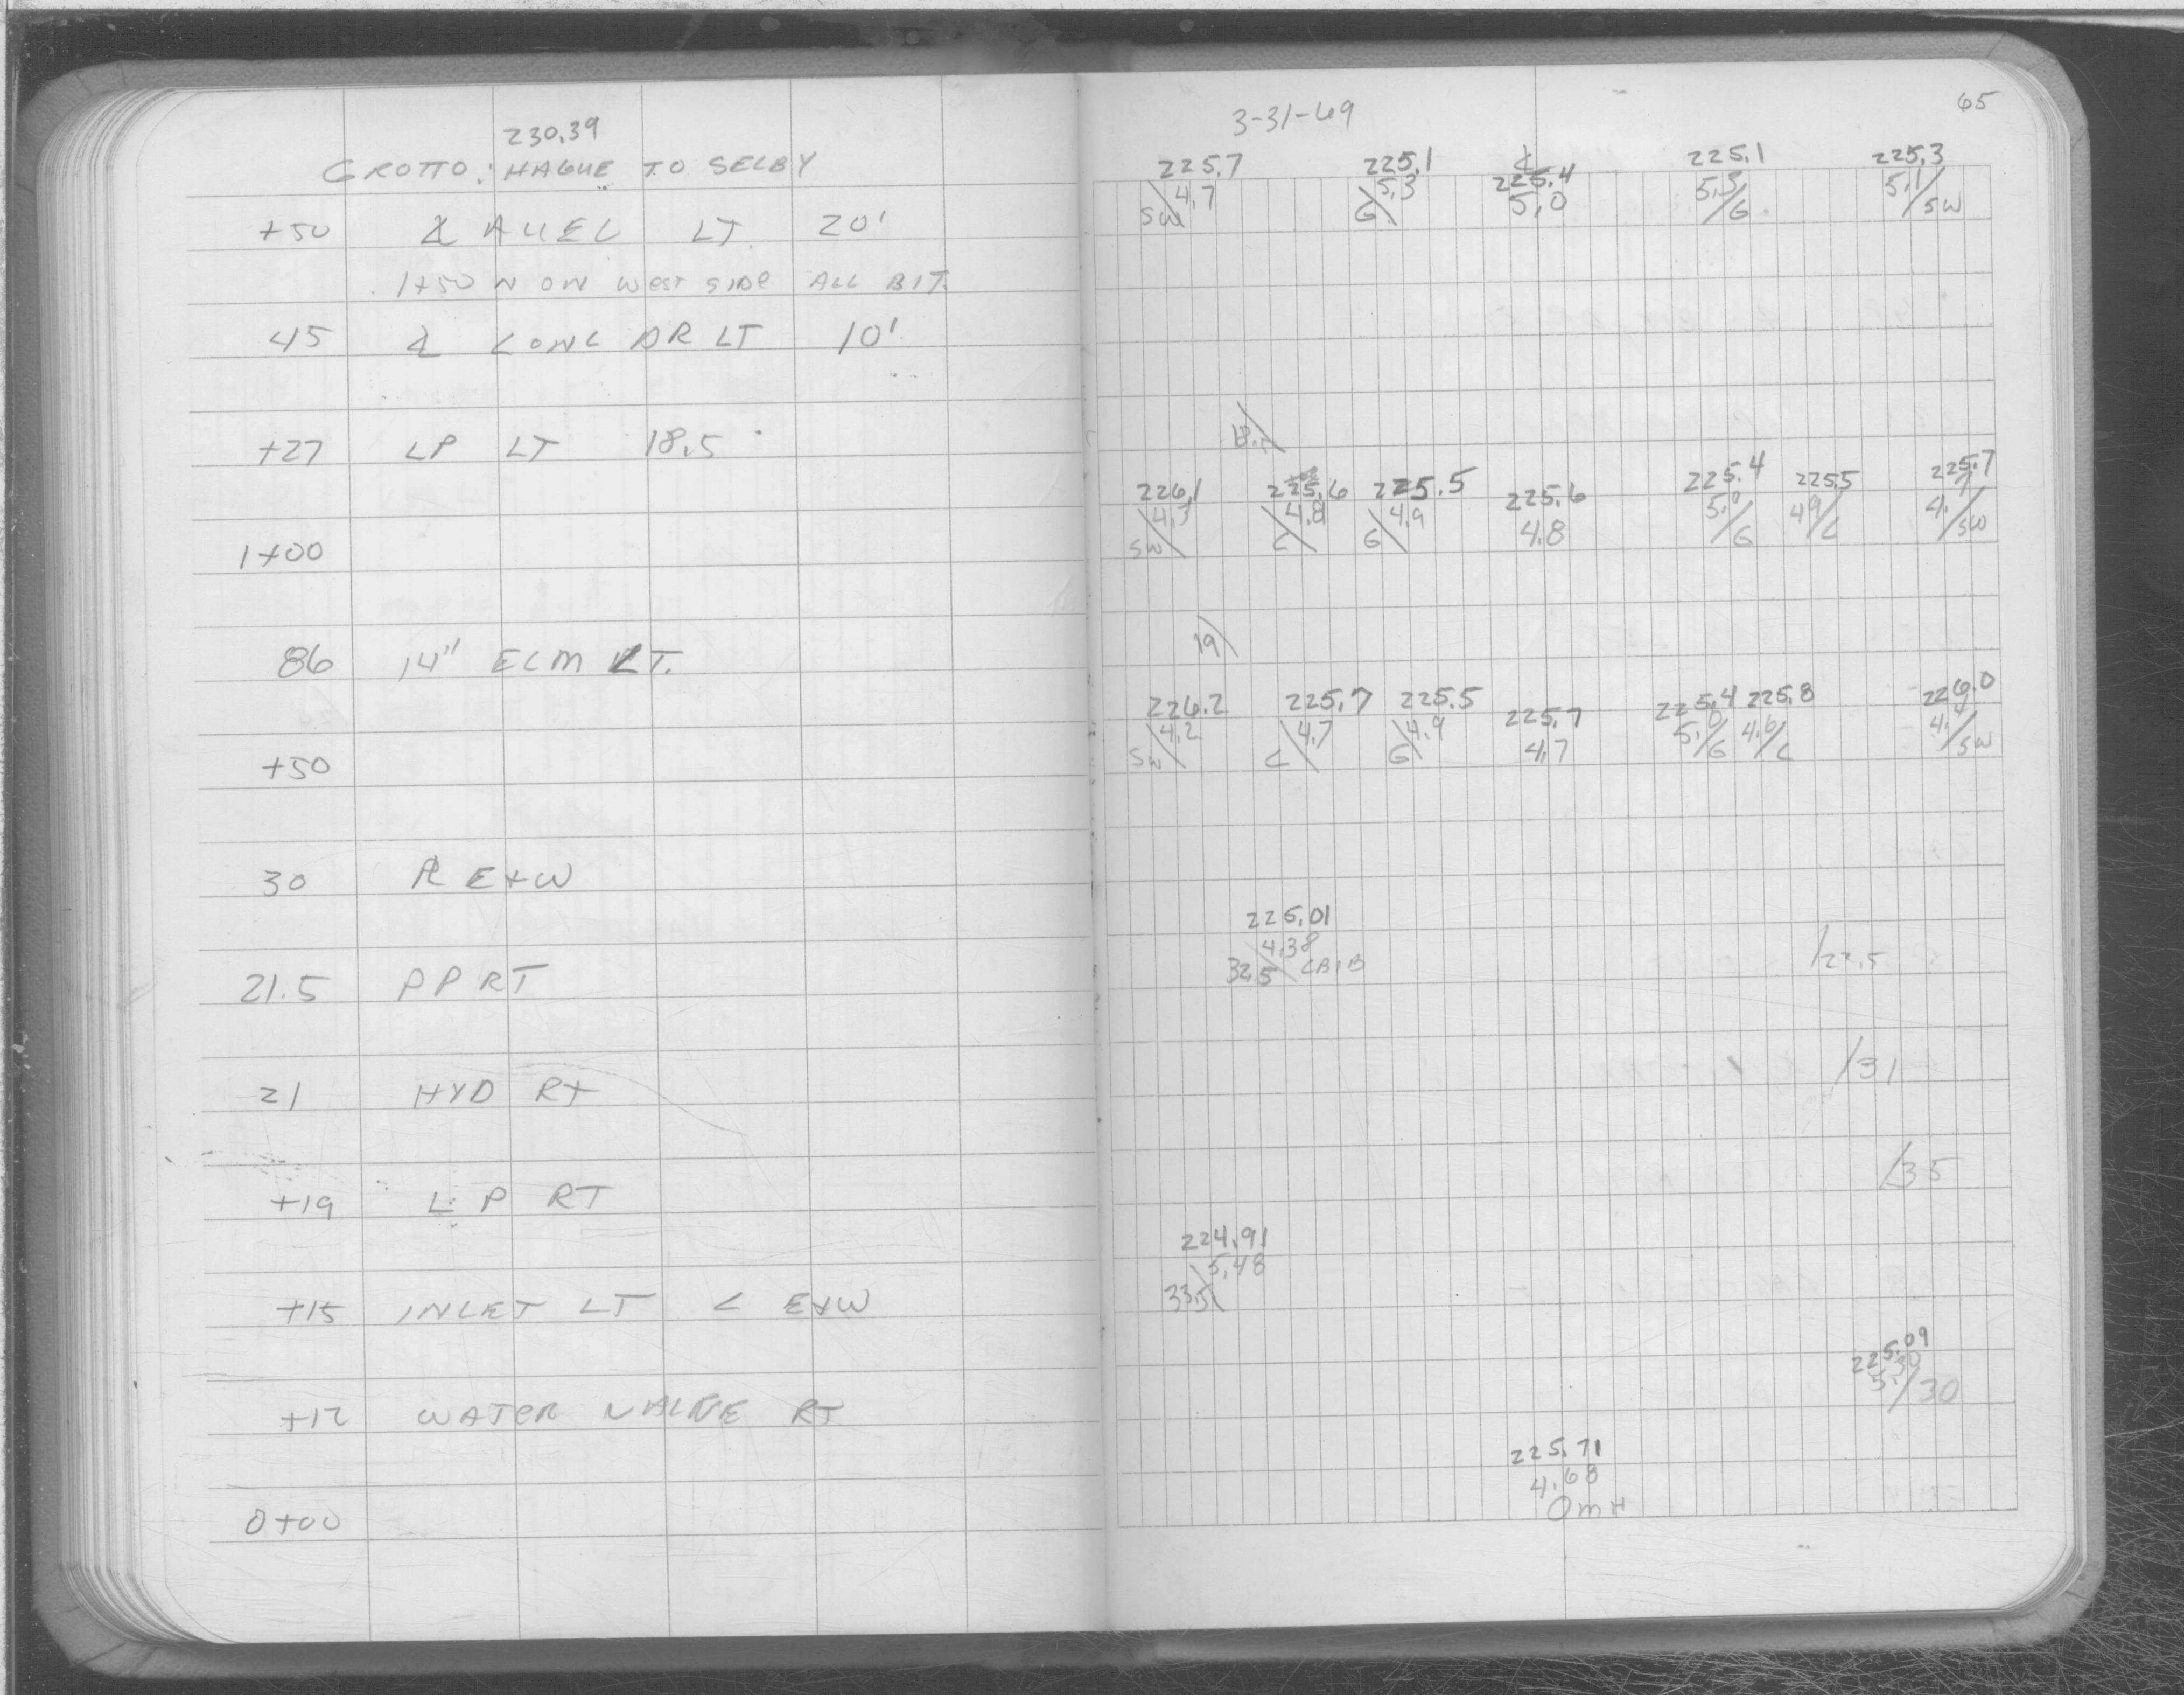 230.39
GROTTO: HAGUE TO SELBY
+50 ℄ ALLEL LT. 20'
1+50 N ON West SIDE ALL BIT.
45 ℄ CONC DR LT 10'
+27 LP LT 18.5
1+00
86 14" ELM LT.
+50
30 ⅊ E+W
21.5 PP RT
21 HYD RT
+19 LP RT
+15 INLET LT C E+W
+12 WATER VALVE RT
0+00
3-31-69
65
225.7 225.1 ℄ 225.1 225.3
225.4
4.7 5.3 5.0 5.3 5.1
SW G G SW
18.5
226.1 225.6 225.5 225.6 225.4 225.5 225.7
4.3 4.8 4.9 4.8 5.0 4.9 4.7
SW C G G C SW
19
226.2 225.7 225.5 225.7 225.4 225.8 226.0
4.2 4.7 4.9 4.7 5.0 4.6 4.4
SW C G G C SW
225.01
4.38
32.5 CBIB
22.5
31
35
224.91
5.48
33.5
225.09
5.30
30
225.71
4.68
0 MH